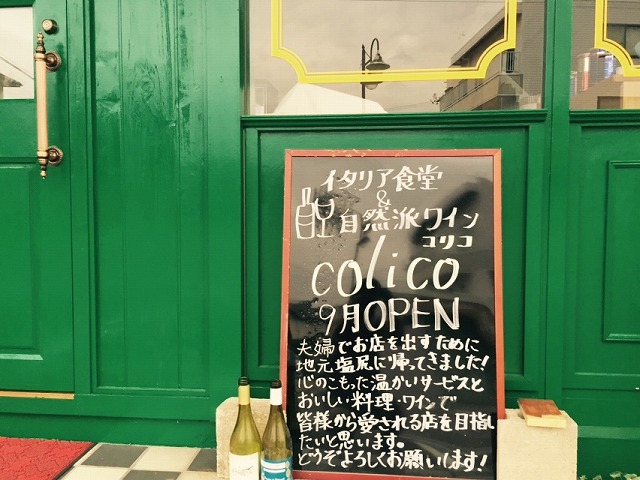 イタリア食堂
&
自然派ワイン
コリコ
colico
9月OPEN
夫婦でお店を出すために
地元塩尻に帰ってきました!
心のこもった温かいサービスと
おいしい料理・ワインで
皆様から愛される店を目指し
たいと思います。
どうぞよろしくお願いします!